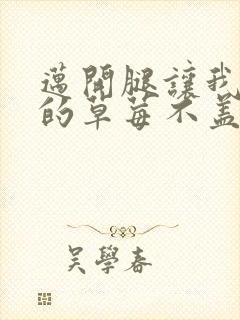 邁開腿讓我
的草莓不蓋
吳學春